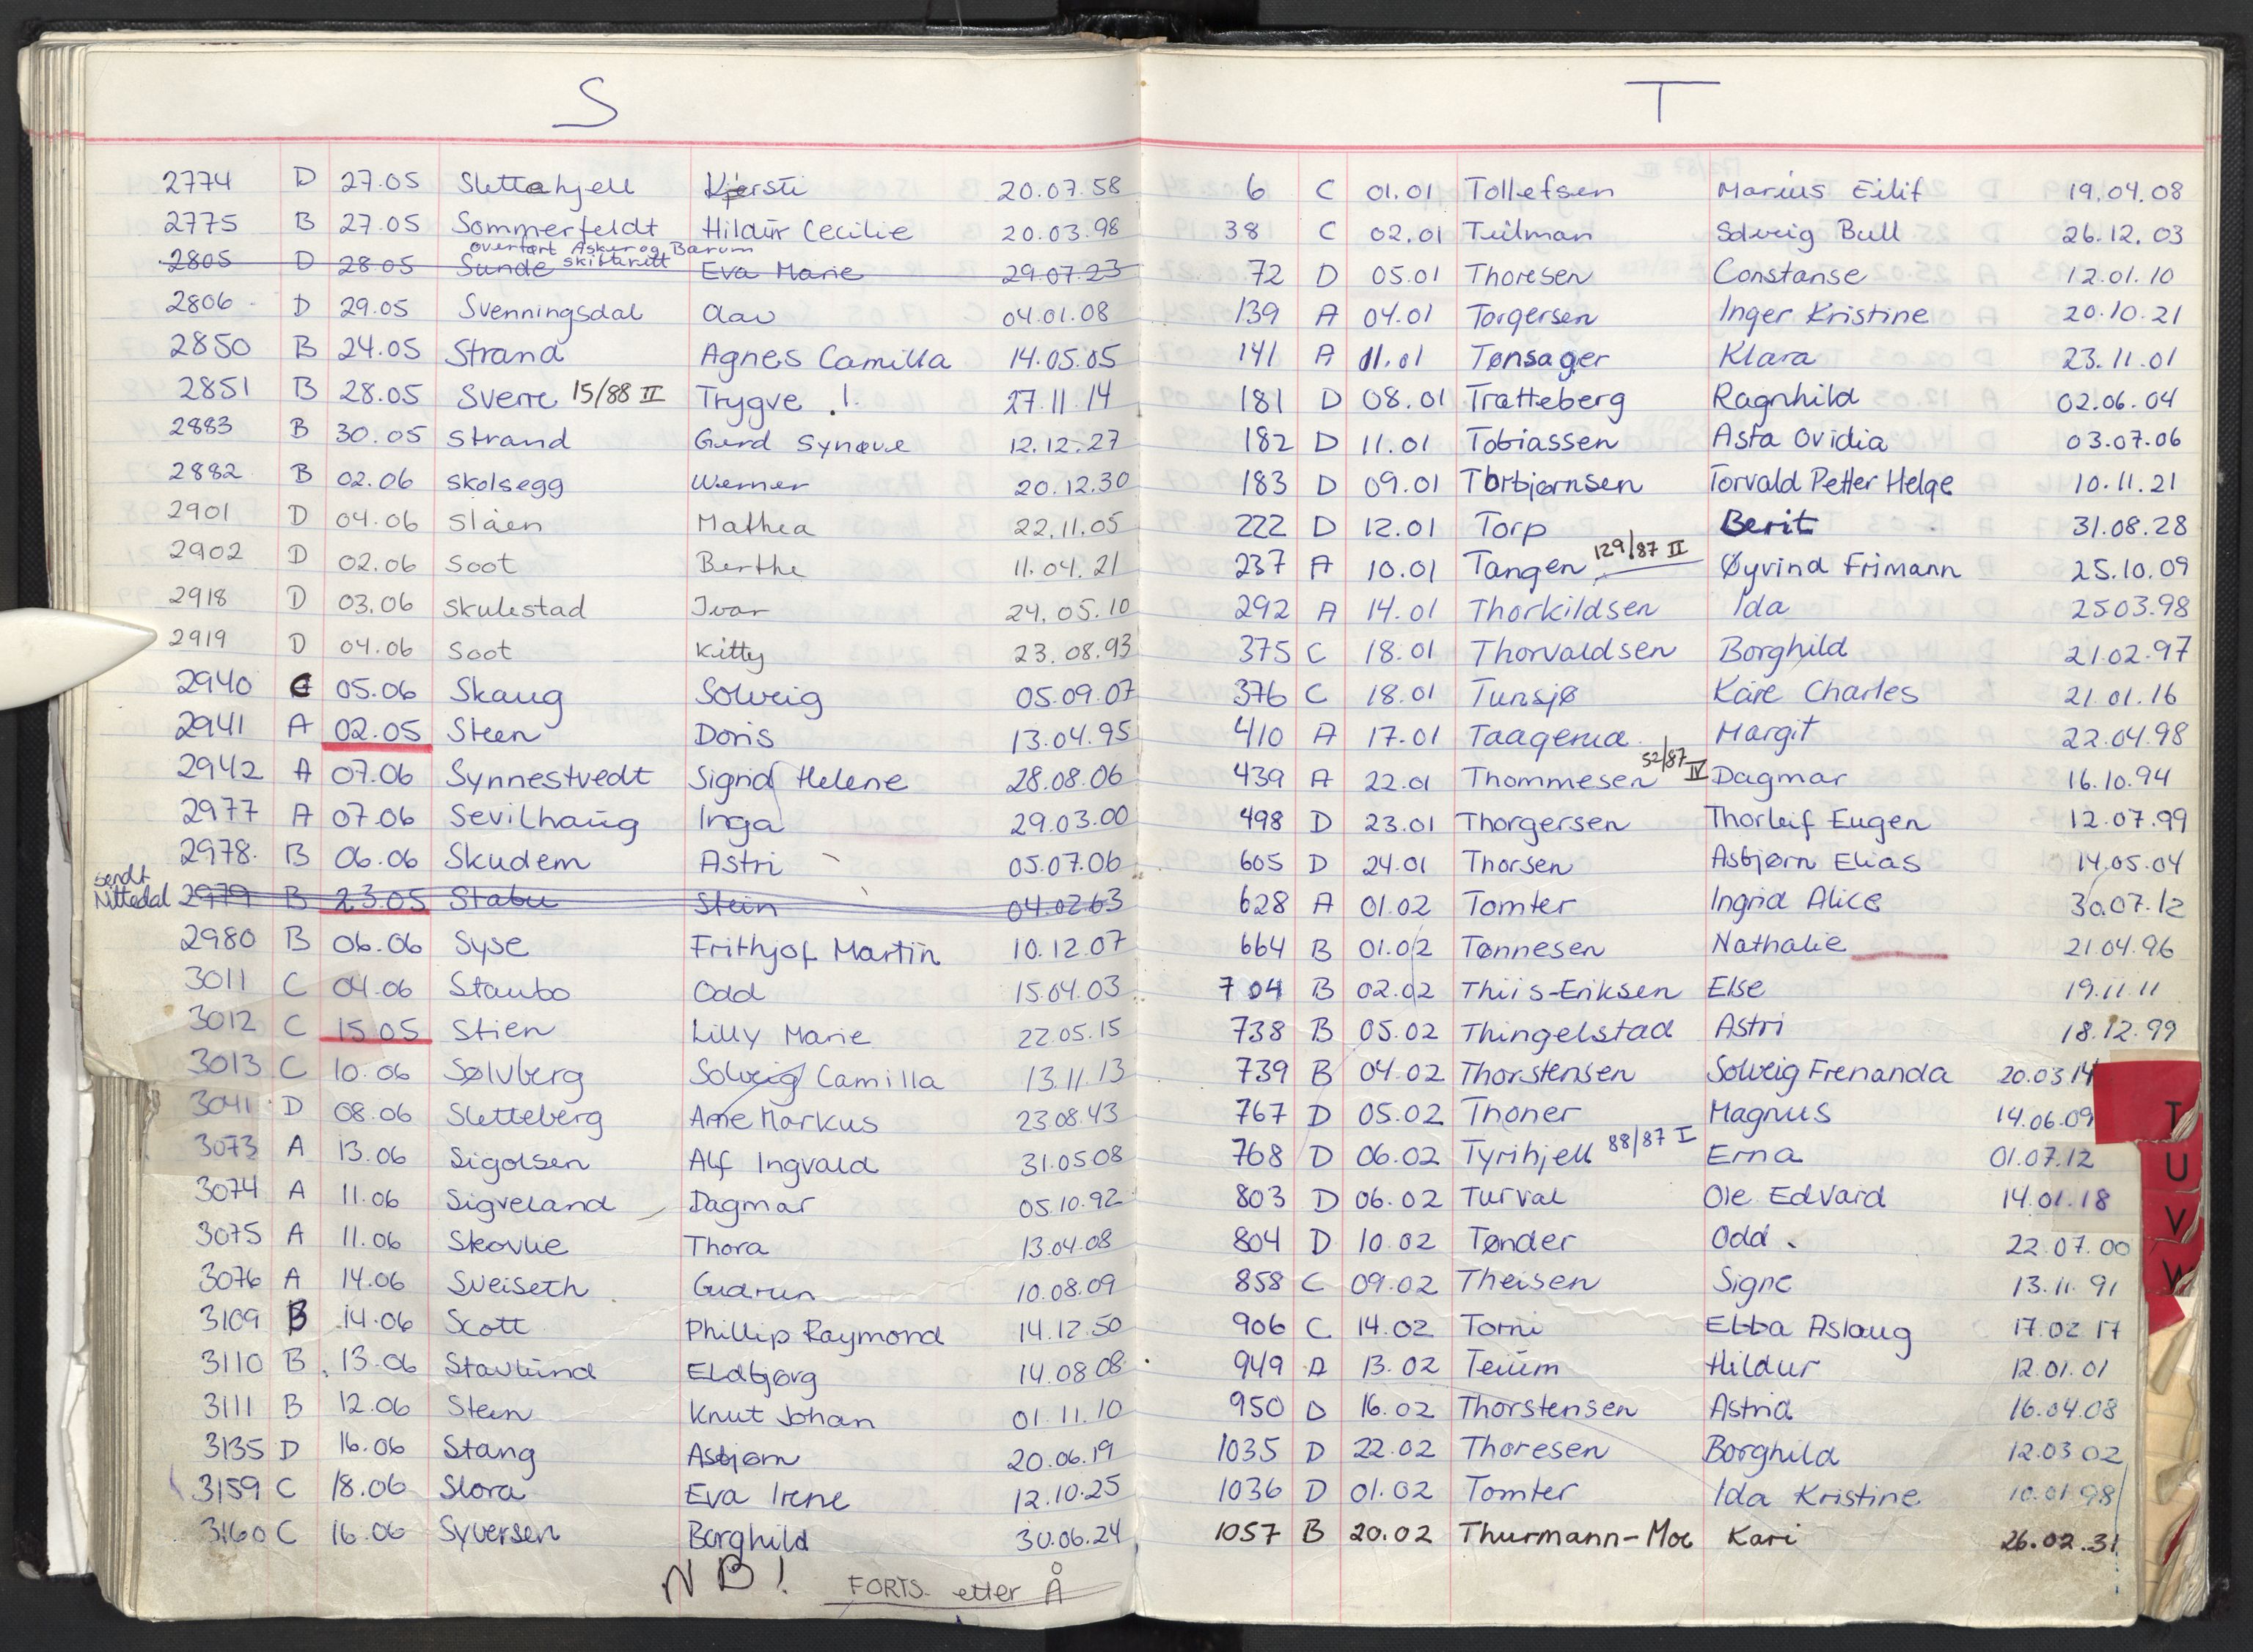 S
2774 D 27.05 Slettahjell Kjersti 20.07.58
2775 B 27.05 Sommerfeldt Hildur Cecilie 20.03.98
overført Asker og Bærum
skifterett
2805 D 28.05 Sunde Eva Marie 29.07.23
2806 D 29.05 Svenningsdal Olav 04.01.08
2850 B 24.05 Strand Agnes Camilla 14.05.05
2851 B 28.05 Sverre 15/88 II Trygve 27.11.14
2883 B 30.05 Strand Gerd Synøve 12.12.27
2882 B 02.06 Skolsegg Werner 20.12.30
2901 D 04.06 Slåen Mathea 22.11.05
2902 D 02.06 Soot Berthe 11.04.21
2918 D 03.06 Skulestad Ivar 24.05.10
2919 D 04.06 Soot Kitty 23.08.93
2940 C 05.06 Skaug Solveig 05.09.07
2941 A 02.05 Steen Doris 13.04.95
2942 A 07.06 Synnestvedt Sigrid Helene 28.08.06
2977 A 07.06 Sevilhaug Inga 29.03.00
2978 B 06.06 Skudem Astri 05.07.06
sendt
Nittedal 2979 B 23.05 Stabu Stein 04.02.63
2980 B 06.06 Syse Frithjof Martin 10.12.07
3011 C 04.06 Staubo Odd 15.04.03
3012 C 15.05 Stien Lilly Marie 22.05.15
3013 C 10.06 Sølvberg Solveig Camilla 13.11.13
3041 D 08.06 Sletteberg Arne Markus 23.08.43
3073 A 13.06 Sigolsen Alf Ingvald 31.05.08
3074 A 11.06 Sigveland Dagmar 05.10.92
3075 A 11.06 Skovlie Thora 13.04.08
3076 A 14.06 Sveiseth Gudrun 10.08.09
3109 B 14.06 Scott Phillip Raymond 14.12.50
3110 B 13.06 Stavlund Eldbjørg 14.08.08
3111 B 12.06 Steen Knut Johan 01.11.10
3135 D 16.06 Stang Asbjørn 20.06.19
3159 C 18.06 Slora Eva Irene 12.10.25
3160 C 16.06 Syversen Borghild 30.06.24
NB! FORTS. etter Å
T
6 C 01.01 Tollefsen Marius Eilif 19.04.08
38 C 02.01 Tidlman Solveig Bull 26.12.03
72 D 05.01 Thoresen Constanse 12.01.10
139 A 04.01 Torgersen Inger Kristine 20.10.21
141 A 11.01 Tønsager Klara 23.11.01
181 D 08.01 Trætteberg Ragnhild 02.06.04
182 D 11.01 Tobiassen Asta Ovidia 03.07.06
183 D 09.01 Torbjørnsen Torvald Petter Helge 10.11.21
222 D 12.01 Torp Berit 31.08.28
237 A 10.01 Tangen 129/87 II Øyvind Frimann 25.10.09
292 A 14.01 Thorkildsen Ida 25.03.98
375 C 18.01 Thorvaldsen Borghild 21.02.97
376 C 18.01 Tunsjø Kåre Charles 21.01.16
410 A 17.01 Taagerud Margit 22.04.98
439 A 22.01 Thommesen 52/87 IV Dagmar 16.10.94
498 D 23.01 Thorgersen Thorleif Eugen 12.07.99
605 D 24.01 Thorsen Asbjørn Elias 14.05.04
628 A 01.02 Tomter Ingrid Alice 30.07.12
664 B 01.02 Tønnesen Nathalie 21.04.96
704 B 02.02 Thiis-Eriksen Else 19.11.11
738 B 05.02 Thingelstad Astri 18.12.99
739 B 04.02 Thorstensen Solveig Frenanda 20.03.14
767 D 05.02 Thoner Magnus 14.06.09
768 D 06.02 Tyrihjell 88/87 I Erna 01.07.12
803 D 06.02 Turval Ole Edvard 14.01.18
804 D 10.02 Tønder Odd 22.07.00
858 C 09.02 Theisen Signe 13.11.91
906 C 14.02 Torni Ebba Aslaug 17.02.17
949 A 13.02 Teium Hildur 12.01.01
950 D 16.02 Thorstensen Astrid 16.04.08
1035 D 22.02 Thoresen Borghild 12.03.02
1036 D 01.02 Tomter Ida Kristine 10.01.98
1057 B 20.02 Thurmann-Moe Kari 26.02.31
T
U
V
W